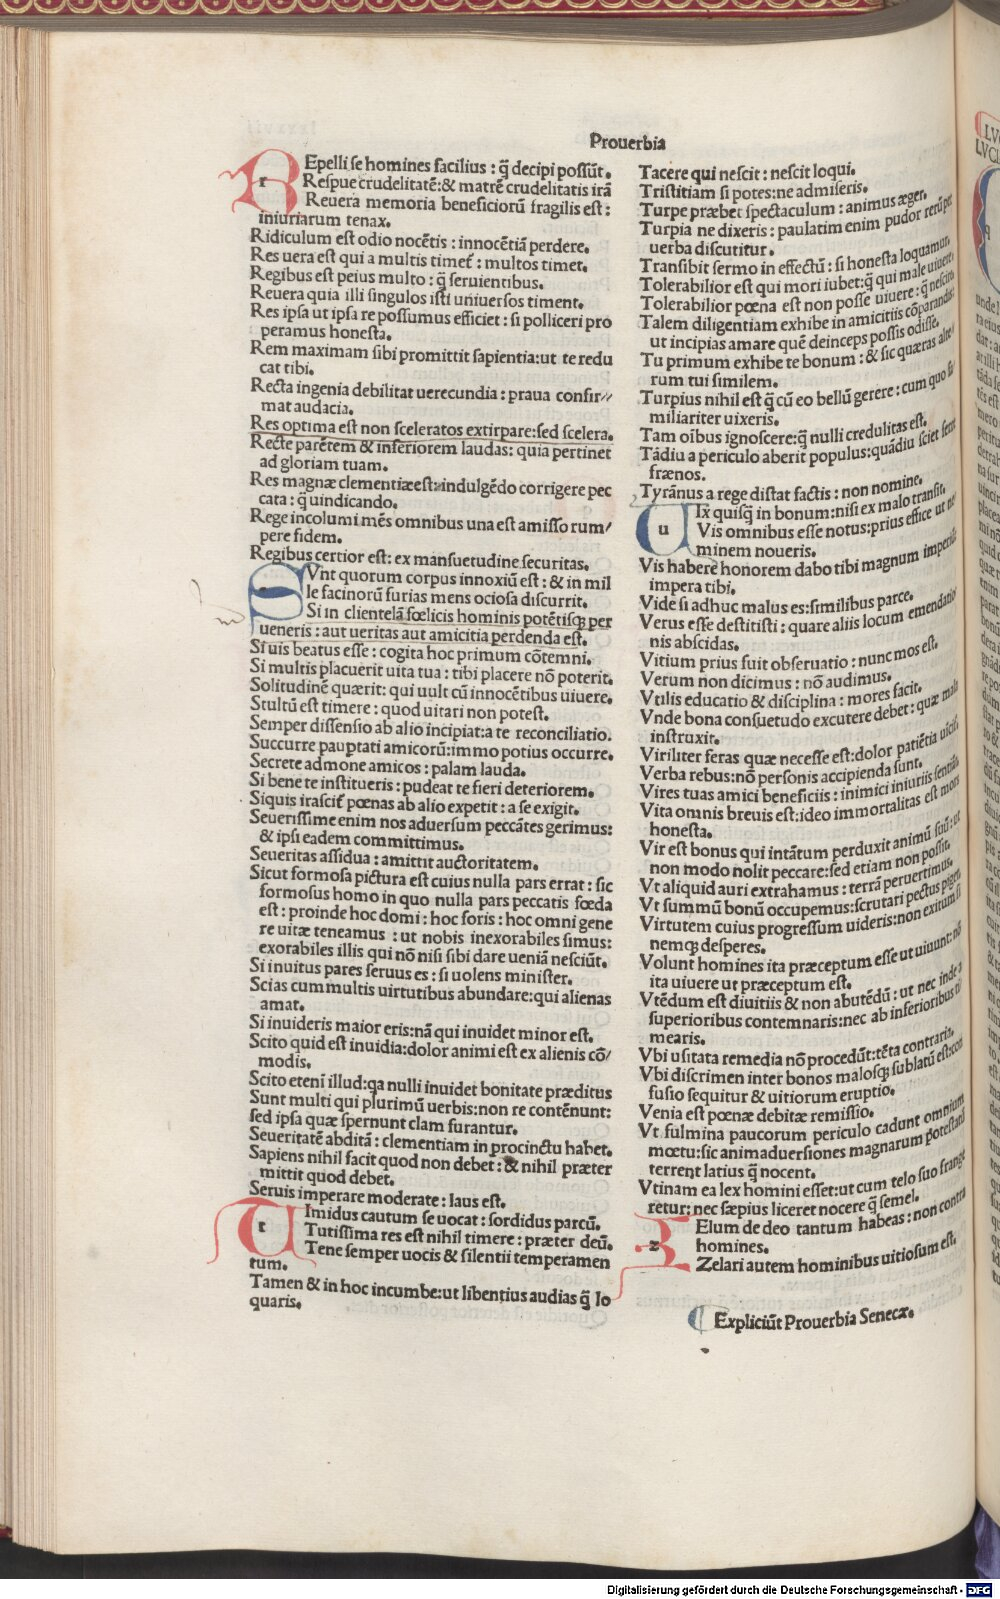 Prouerbia
REpelli se homines facilius : q̃ decipi possũt.
Respue crudelitatẽ:& matrẽ crudelitatis irã
Reuera memoria beneficiorũ fragilis est :
iniuriarum tenax.
Ridiculum est odio nocẽtis : innocẽtiã perdere.
Res uera est qui a multis timet̃ : multos timet.
Regibus est peius multo : q̃ seruientibus.
Reuera quia illi singulos isti uniuersos timent.
Res ipsa ut ipsa re possumus efficiet : si polliceri pro
peramus honesta.
Rem maximam sibi promittit sapientia:ut te redu
cat tibi.
Recta ingenia debilitat uerecundia : praua confir//
mat audacia.
Res optima est non sceleratos extirpare:sed scelera.
Recte parẽtem & inferiorem laudas: quia pertinet
ad gloriam tuam.
Res magnæ clementiæ est:indulgẽdo corrigere pec
cata : q̃ uindicando.
Rege incolumi mẽs omnibus una est amisso rum/
pere fidem.
Regibus certior est: ex mansuetudine securitas.
SVnt quorum corpus innoxiũ est : & in mil
le facinorũ furias mens ociosa discurrit.
Si in clientelã fœlicis hominis potẽtisq; per
ueneris : aut ueritas aut amicitia perdenda est.
Si uis beatus esse : cogita hoc primum cõtemni.
Si multis placuerit uita tua : tibi placere nõ poterit.
Solitudinẽ quærit: qui uult cũ innocẽtibus uiuere.
Stultũ est timere : quod uitari non potest.
Semper dissensio ab alio incipiat:a te reconciliatio.
Succurre pauptati amicorũ:immo potius occurre.
Secrete admone amicos : palam lauda.
Si bene te institueris : pudeat te fieri deteriorem.
Siquis irascit̃ pœnas ab alio expetit : a se exigit.
Seuerissime enim nos aduersum peccãtes gerimus:
& ipsi eadem committimus.
Seueritas assidua : amittit auctoritatem.
Sicut formosa pictura est cuius nulla pars errat : sic
formosus homo in quo nulla pars peccatis fœda
est : proinde hoc domi : hoc foris : hoc omni gene
re uitæ teneamus : ut nobis inexorabiles simus:
exorabiles illis qui nõ nisi sibi dare ueniã nesciũt.
Si inuitus pares seruus es : si uolens minister.
Scias cum multis uirtutibus abundare:qui alienas
amat.
Si inuideris maior eris:nã qui inuidet minor est.
Scito quid est inuidia:dolor animi est ex alienis cõ/
modis.
Scito eteni illud:qa nulli inuidet bonitate præditus
Sunt multi qui plurimũ uerbis:non re contẽnunt:
sed ipsa quæ spernunt clam furantur.
Seueritatẽ abditã : clementiam in procinctu habet.
Sapiens nihil facit quod non debet : & nihil præter
mittit quod debet.
Seruis imperare moderate : laus est.
TImidus cautum se uocat : sordidus parcũ.
Tutissima res est nihil timere : præter deũ.
Tene semper uocis & silentii temperamen
tum.
Tamen & in hoc incumbe:ut libentius audias q̃ lo
quaris.
Tacere qui nescit : nescit loqui.
Tristitiam si potes:ne admiseris.
Turpe præbet spectaculum : animus æger.
Turpia ne dixeris : paulatim enim pudor rerũ per
uerba discutitur.
Transibit sermo in effectũ : si honesta loquamur.
Tolerabilior est qui mori iubet:q̃ qui male uiuere.
Tolerabilior pœna est non posse uiuere : q̃ nescire
Talem diligentiam exhibe in amicitiis cõparandis
ut incipias amare quẽ deinceps possis odisse.
Tu primum exhibe te bonum : & sic quæras alte/
rum tui similem.
Turpius nihil est q̃ cũ eo bellũ gerere : cum quo fa
miliariter uixeris.
Tam oĩbus ignoscere:q̃ nulli credulitas est.
Tãdiu a periculo aberit populus:quãdiu sciet ferre
frænos.
Tyrãnus a rege distat factis : non nomine.
UIx quisq̃ in bonum:nisi ex malo transit.
Vis omnibus esse notus:prius effice ut ne
minem noueris.
Vis habere honorem dabo tibi magnum imperiũ
impera tibi.
Vide si adhuc malus es:similibus parce.
Verus esse destitisti : quare aliis locum emendatio
nis abscidas.
Vitium prius fuit obseruatio : nunc mos est.
Verum non dicimus : nõ audimus.
Vtilis educatio & disciplina : mores facit.
Vnde bona consuetudo excutere debet : quæ mala
instruxit.
Viriliter feras quæ necesse est:dolor patiẽtia uicit.
Verba rebus:nõ personis accipienda sunt.
Vires tuas amici beneficiis : inimici iniuriis sentiãt
Vita omnis breuis est:ideo immortalitas est mors
honesta.
Vir est bonus qui intãtum perduxit animũ suũ : ut
non modo nolit peccare:sed etiam non possit.
Vt aliquid auri extrahamus : terrã peruertimus.
Vt summũ bonũ occupemus:scrutari pectus piget.
Virtutem cuius progressum uideris:non exitum si
nemq; desperes.
Volunt homines ita præceptum esse ut uiuunt: nõ
ita uiuere ut præceptum est.
Vtẽdum est diuitiis & non abutẽdũ : ut nec inde a
superioribus contemnaris:nec ab inferioribus ti
mearis.
Vbi usitata remedia nõ procedũt:tẽta contraria.
Vbi discrimen inter bonos malosq; sublatũ est:con
fusio sequitur & uitiorum eruptio.
Venia est pœnæ debitæ remissio.
Vt fulmina paucorum periculo cadunt omnium
mœtu:sic animaduersiones magnarum potestatũ
terrent latius q̃ nocent.
Vtinam ea lex homini esset:ut cum telo suo frange
retur: nec sæpius liceret nocere q̃ semel.
ZElum de deo tantum habeas : non contra
homines.
Zelari autem hominibus uitiosum est.
Expliciũt Prouerbia Senecæ.
Digitalisierung gefördert durch die Deutsche Forschungsgemeinschaft - DFG